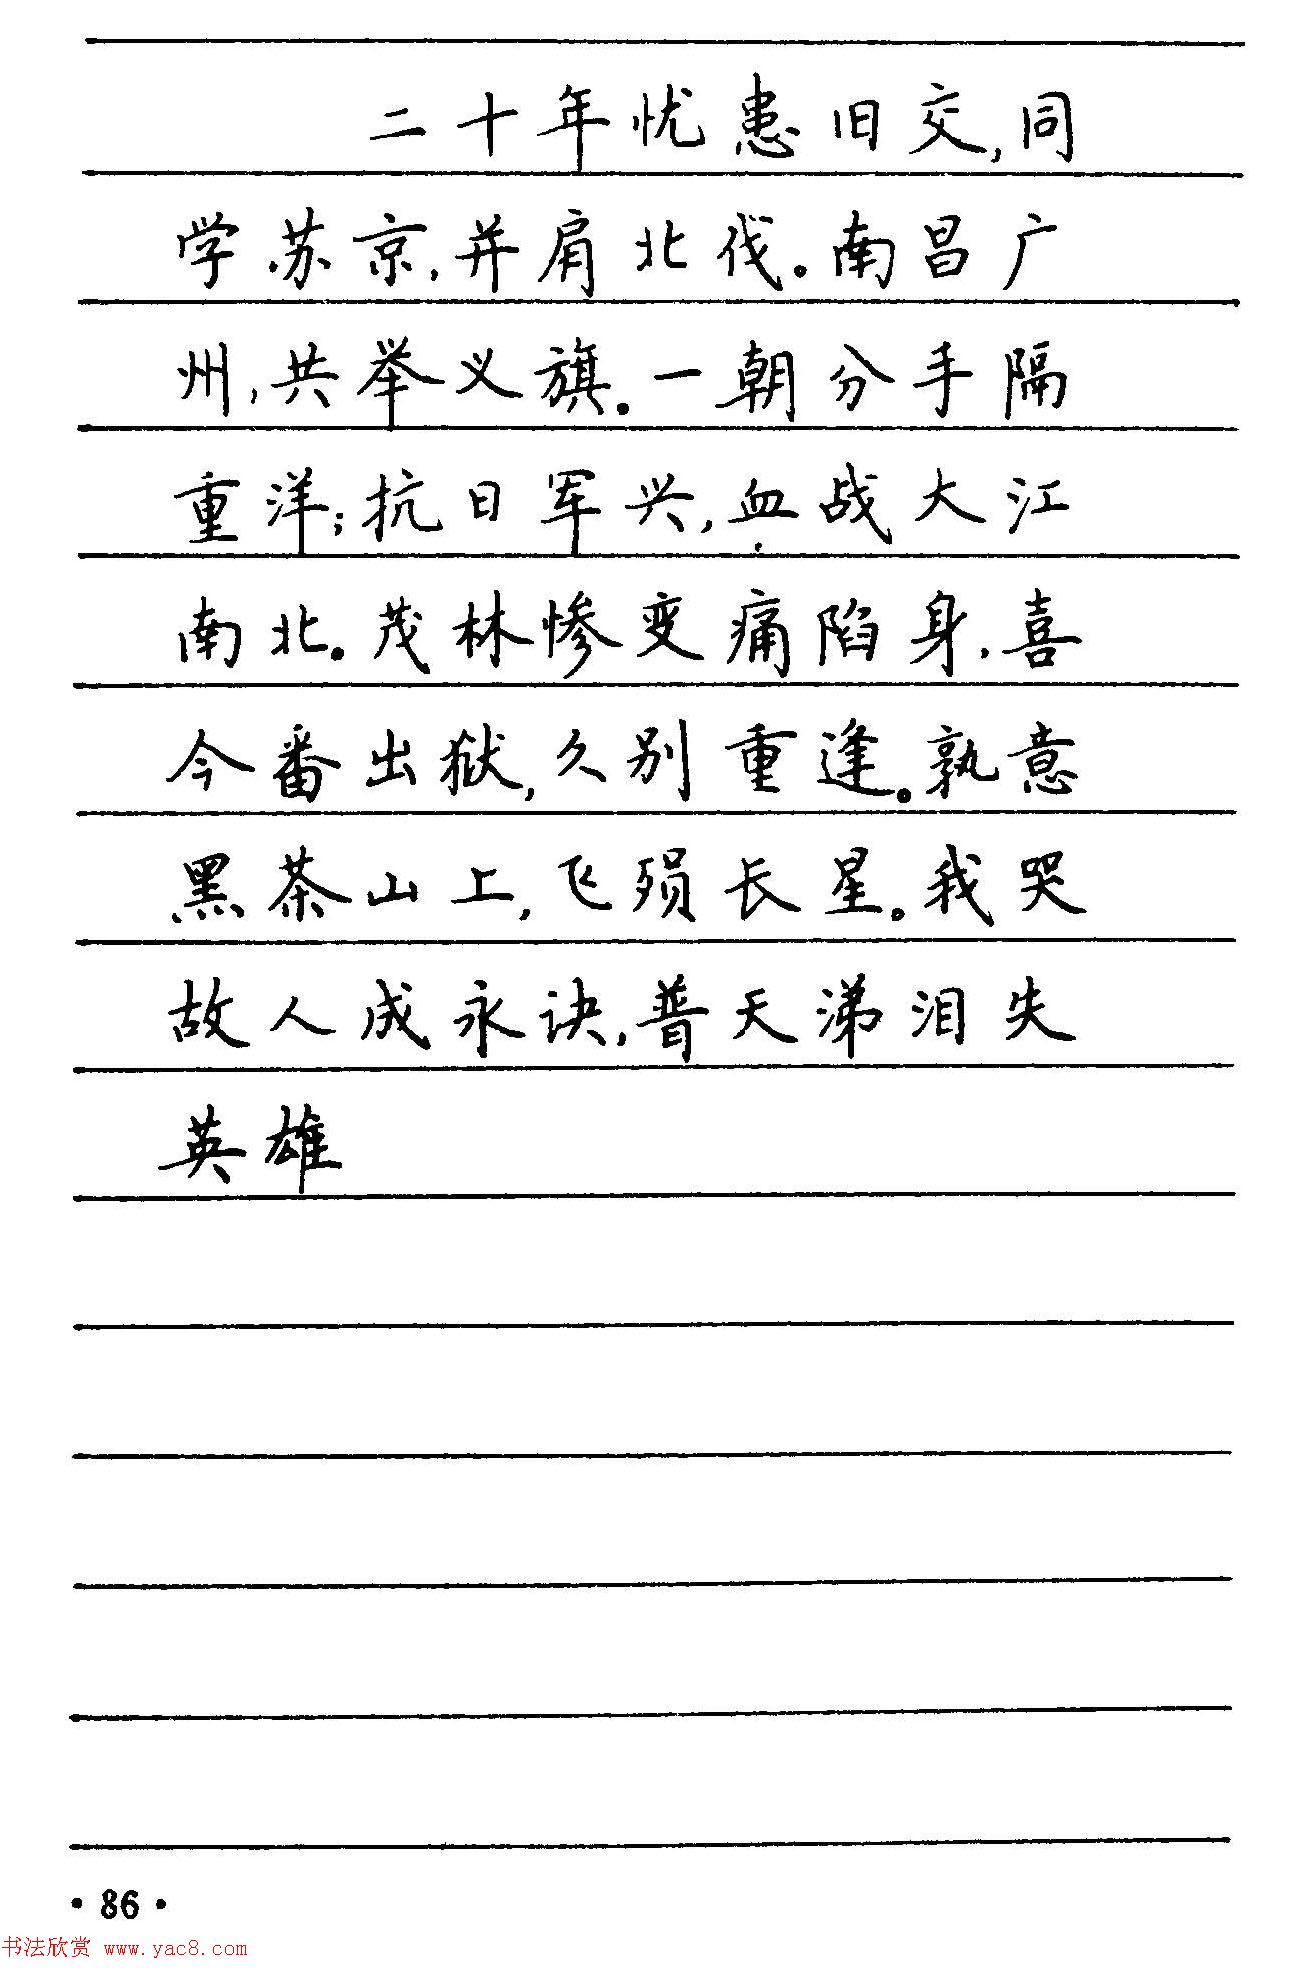 二十年忧患旧交,同
学苏京,并肩北伐。南昌广
州,共举义旗。一朝分手隔
重洋;抗日军兴,血战大江
南北。茂林惨变痛陷身,喜
今番出狱,久别重逢。孰意
黑茶山上,飞殒长星。我哭
故人成永诀,普天涕泪失
英雄
·86·
书法欣赏 www.yac8.com